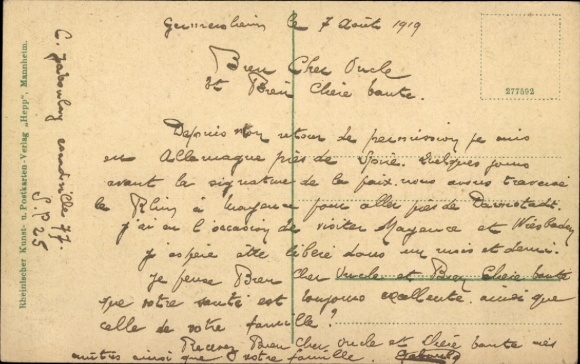 Germersheim le 7 Août 1919
Bien Cher Oncle
et Bien Chère tante.
Depuis mon retour de permission je suis
en Allemagne près de Spire. Quelques jours
avant la signature de la paix, nous avons traversé
le Rhin à Mayence pour aller près de Darmstadt.
j'ai eu l'occasion de visiter Mayence et Wiesbaden
j'espère être libéré dans un mois et demi.
Je pense Bien Cher Oncle et Bien Chère tante
que votre santé est toujours excellente ainsi que
celle de votre famille!
Recevez Bien Cher Oncle et Chère tante mes
amitiés ainsi que votre famille.
C. Jaboulay escadrille 77.
S.P 25
Rheinischer Kunst- u. Postkarten-Verlag „Hepp", Mannheim.
277592